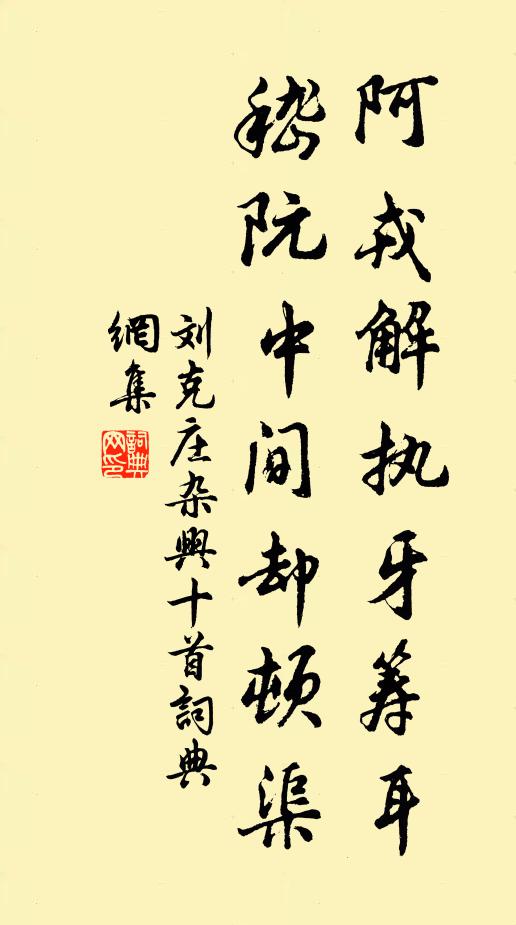 阿戎解执牙筹耳
嵇阮中间却顿渠
刘克庄杂興十首詞典
網集
詞典
网印